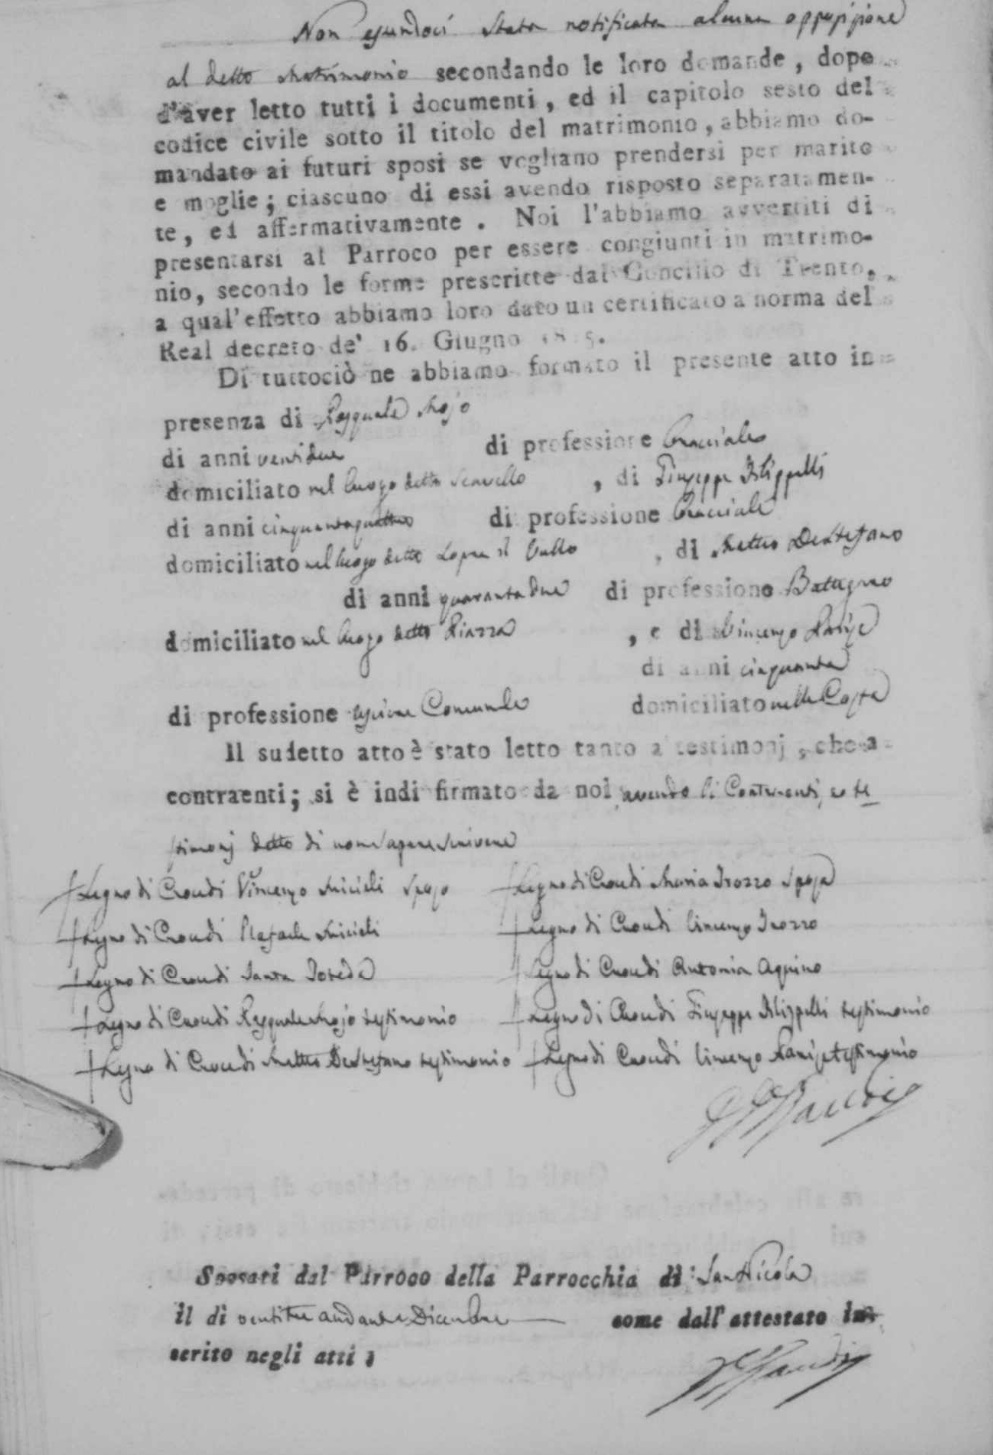 Non essendoci stata notificata alcuna oppopizione
al detto Matrimonio secondando le loro domande, dopo
d'aver letto tutti i documenti, ed il capitolo sesto del
codice civile sotto il titolo del matrimonio, abbiamo do-
mandato ai futuri sposi se vogliano prendersi per marito
e moglie; ciascuno di essi avendo risposto separatamen-
te, ed affermativamente. Noi l'abbiamo avvertiti di
presentarsi al Parroco per essere congiunti in matrimo-
nio, secondo le forme prescritte dal Concilio di Trento,
a qual'effetto abbiamo loro dato un certificato a norma del
Real decreto de' 16. Giugno 1815.
Di tuttociò ne abbiamo formato il presente atto in
presenza di Pasquale Mojo
di anni ventidue di professione Bracciale
domiciliato nel luogo detto , di Giuseppe Filippelli
di anni cinquantaquattro di professione Bracciale
domiciliato nel luogo detto Sopra il Vallo , di Matteo DeStefano
di anni quarantadue di professione
domiciliato nel luogo detto Piazza , e di Vincenzo
di anni cinquanta
di professione Comunale domiciliato nella Costa
Il sudetto atto è stato letto tanto a testimonj, che a
contraenti; si è indi firmato da noi, avendo li Contraenti, e te-
stimonj detto di non sapere scrivere
+ Segno di Croce di Vincenzo Miceli Sposo + Segno di Croce di Maria Trozzo Sposa
+ Segno di Croce di Rafaele Miceli + Segno di Croce di Vincenzo Trozzo
+ Segno di Croce di Santa + Segno di Croce di Antonia Aquino
+ Segno di Croce di Pasquale Mojo testimonio + Segno di Croce di Giuseppe Filippelli testimonio
+ Segno di Croce di Matteo DeStefano testimonio + Segno di Croce di Vincenzo testimonio
Sposati dal Parroco della Parrocchia di San Nicola
il di ventitre andante Dicembre come dall'attestato in-
serito negli atti;